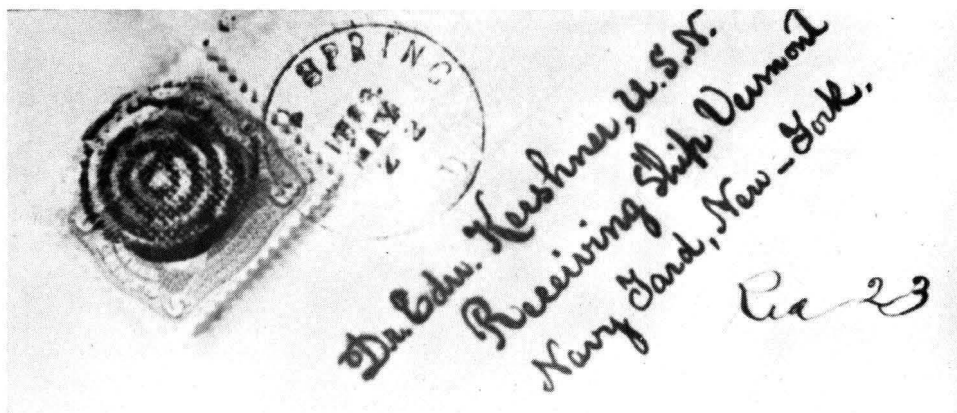 SPRING
MAY
Dr. Edw. Kershner, U.S.N.
Receiving Ship Vermont
Navy Yard, New-York.
23